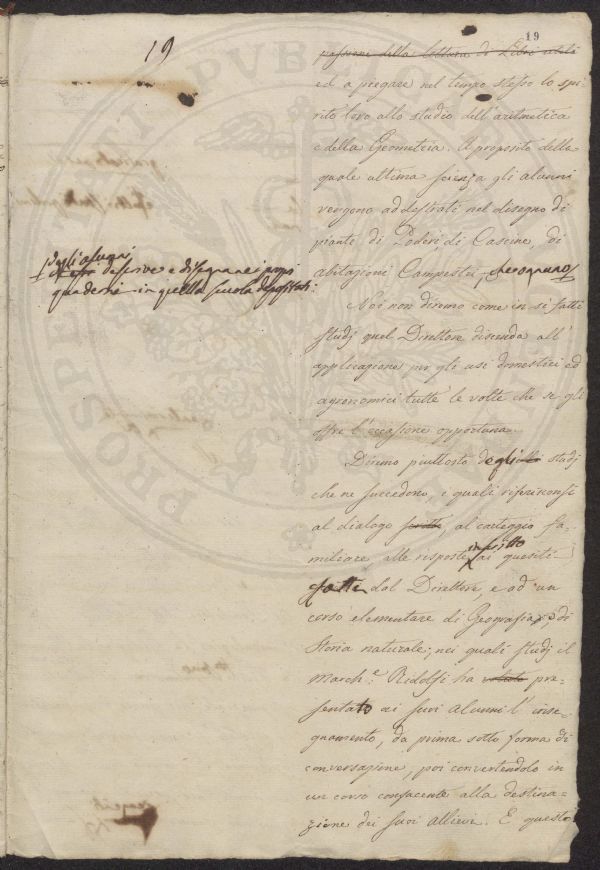 19
19
passione della lettura di Libri utili
ed a piegare nel tempo stesso lo spi-
rito loro allo studio dell'aritmetica
e della Geometria. A proposito della
quale ultima scienza gli alunni
vengono addestrati nel disegno di
piante di Poderi, di Cascine, di
abitazioni Campestri, che ognuno
degli alunni
descrive e disegna nei propri
quaderni in quella scuola depositati.
Noi non diremo come in sì fatti
studj quel Direttore discenda all'
applicazione per gli usi domestici ed
agronomici tutte le volte che se gli
offre l'occasione opportuna.
Diremo piuttosto degli studj
che ne succedono, i quali riferisconsi
al dialogo scritto, al carteggio fa-
miliare, alle risposte in scritto ai quesiti
fatti dal Direttore, e ad un
corso elementare di Geografia, e di
Storia naturale; nei quali studj il
March.e Ridolfi ha voluto pre-
sentato ai suoi alunni l'inse-
gnamento, da prima sotto forma di
conversazione, poi convertendolo in
un corso confacente alla destina-
zione dei suoi allievi. E questo
PROSPERITATI PUBLICAE